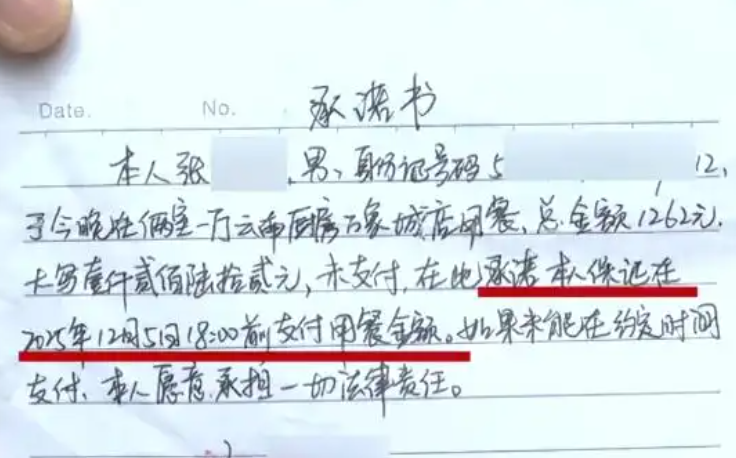 Date. No. 承诺书
本人张 ,男、身份证号码5 12,
于今晚在俩室一厅云南厨房万象城店用餐、总金额1262元,
大写壹仟贰佰陆拾贰元,未支付,在此承诺本人保证在
2025年12月5日18:00前支付用餐金额。如果未能在约定时间
支付、本人愿意承担一切法律责任。